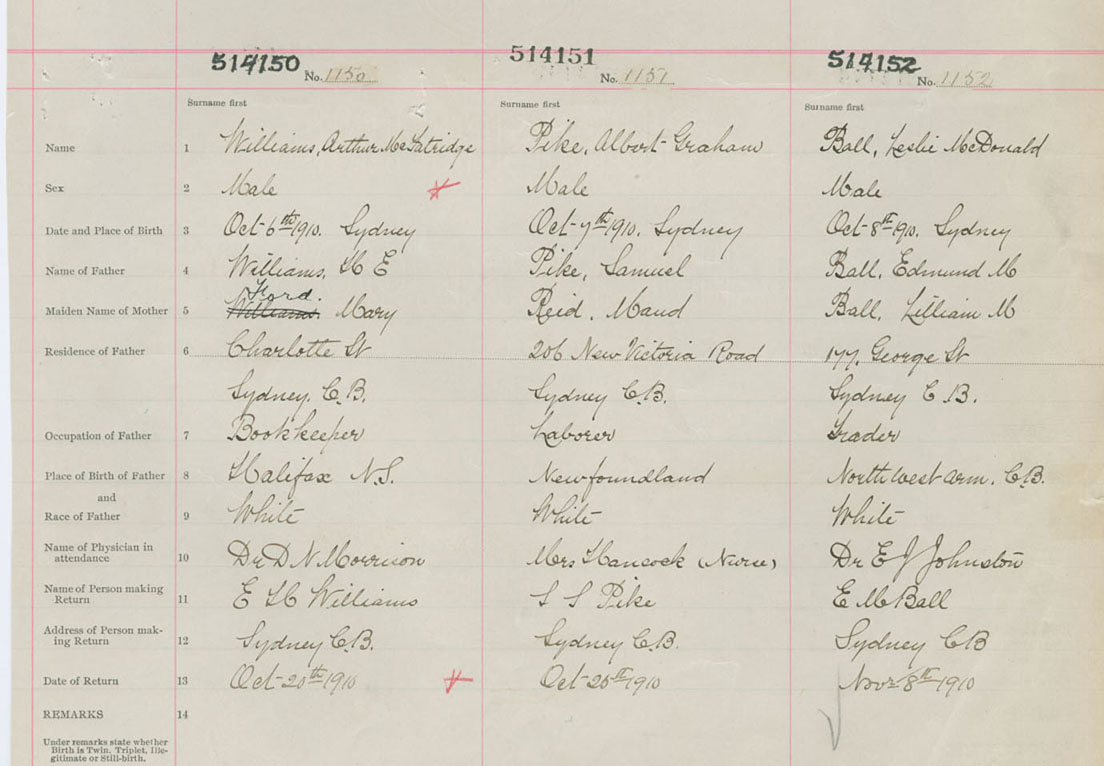 514150 514151 514152
No. 1150 No. 1151 No. 1152
Surname first Surname first Surname first
Name 1 Williams, Arthur McFatridge Pike, Albert Graham Ball, Leslie McDonald
Sex 2 Male Male Male
Date and Place of Birth 3 Oct 6th 1910. Sydney Oct 7th 1910. Sydney Oct 8th 1910. Sydney
Name of Father 4 Williams, H E Pike, Samuel Ball, Edmund M
Ford.
Maiden Name of Mother 5 Williams. Mary Reid, Maud Ball, Lilliam M
Residence of Father 6 Charlotte St 206 New Victoria Road 177, George St
Sydney, C.B. Sydney C.B. Sydney C.B.
Occupation of Father 7 Bookkeeper Laborer Trader
Place of Birth of Father 8 Halifax N.S. Newfoundland Northwest Arm, C.B.
and
Race of Father 9 White White White
Name of Physician in
attendance 10 Dr D N Morrison Mrs Hancock (Nurse) Dr E J Johnston
Name of Person making
Return 11 E H Williams S S Pike E M Ball
Address of Person mak-
ing Return 12 Sydney C.B. Sydney C.B. Sydney CB
Date of Return 13 Oct 20th 1910 Oct 1910 Nov 8th 1910
REMARKS 14
Under remarks state whether
Birth is Twin, Triplet, Ille-
gitimate or Still-birth.